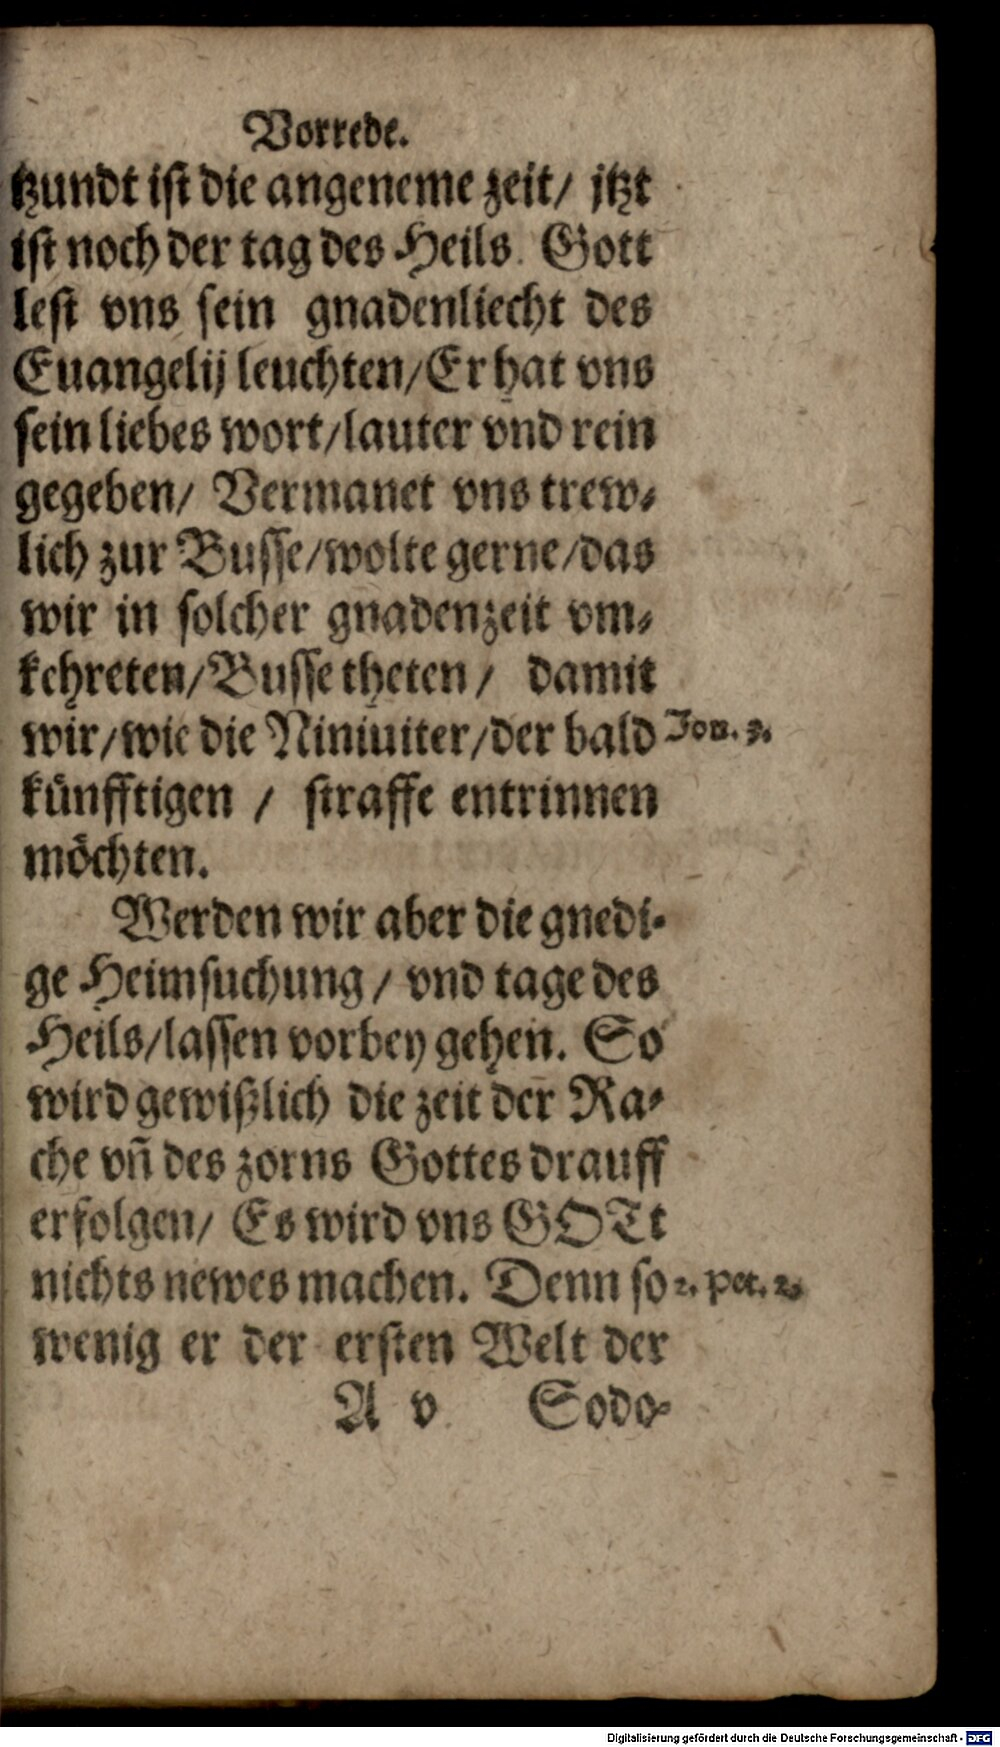 Vorrede.
tzundt ist die angeneme zeit/ jtzt
ist noch der tag des Heils. Gott
lest vns sein gnadenliecht des
Euangelij leuchten/Er hat vns
sein liebes wort/lauter vnd rein
gegeben/ Vermanet vns trew⸗
lich zur Busse/wolte gerne/das
wir in solcher gnadenzeit vm⸗
kehreten/Busse theten/ damit
wir/wie die Niniuiter/der bald Jon. 3.
künfftigen / straffe entrinnen
möchten.
Werden wir aber die gnedi⸗
ge Heimsuchung/ vnd tage des
Heils/lassen vorbey gehen. So
wird gewißlich die zeit der Ra⸗
che vñ des zorns Gottes drauff
erfolgen/ Es wird vns GOTt
nichts newes machen. Denn so 2. Pet. 2.
wenig er der ersten Welt der
A v Sodo⸗
Digitalisierung gefördert durch die Deutsche Forschungsgemeinschaft - DFG